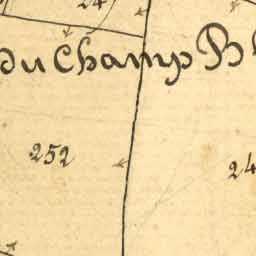 24
du Champ B
252
24